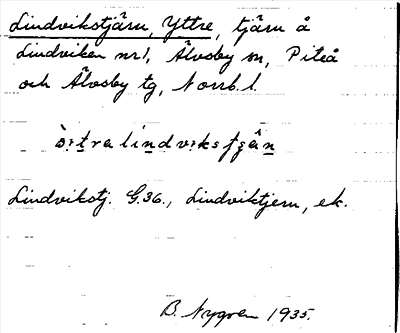 Lindvikstjärn, Yttre, tjärn å
Lindviken nr 1, Älvsby sn, Piteå
och Älvsby tg, Norrb. l.
Lindvikstj. G.36., Lindviktjern, ek.
B. Nygren 1935.